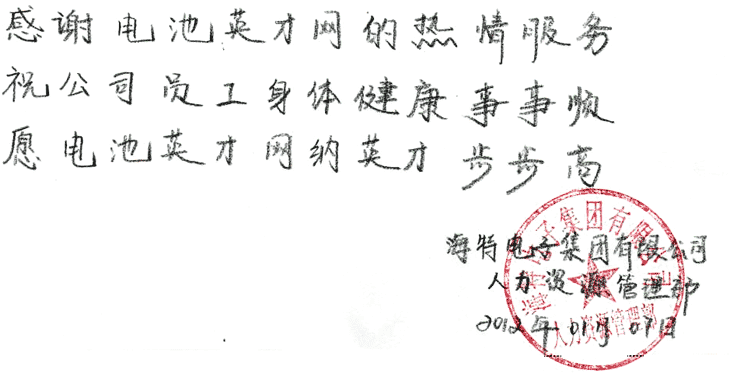 感谢电池英才网的热情服务
祝公司员工身体健康事事顺
愿电池英才网纳英才步步高
海特电子集团有限公司
人力资源管理部
2012年01月07日
海特电子集团有限公司
人力资源管理部